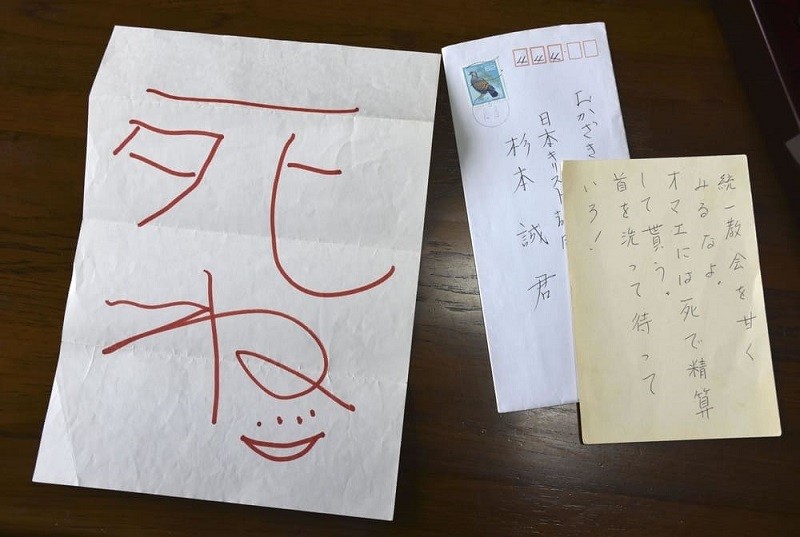 死
ね
444
おかざき
日本キリスト
杉本 誠 君
統一教会を甘く
みるなよ。
オマエには死で精算
して貰う。
首を洗って待って
いろ！